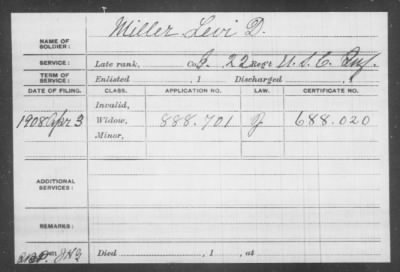 NAME OF SOLDIER: Miller Levi D.
SERVICE: Late rank, Co. G. 22 Reg't U.S.C. Inf.
TERM OF SERVICE: Enlisted , 1 Discharged , 1
DATE OF FILING. CLASS. APPLICATION NO. LAW. CERTIFICATE NO.
Invalid,
1908 Apr 3 Widow, 888.701 688.020
Minor,
ADDITIONAL SERVICES:
REMARKS:
Died , 1 , at